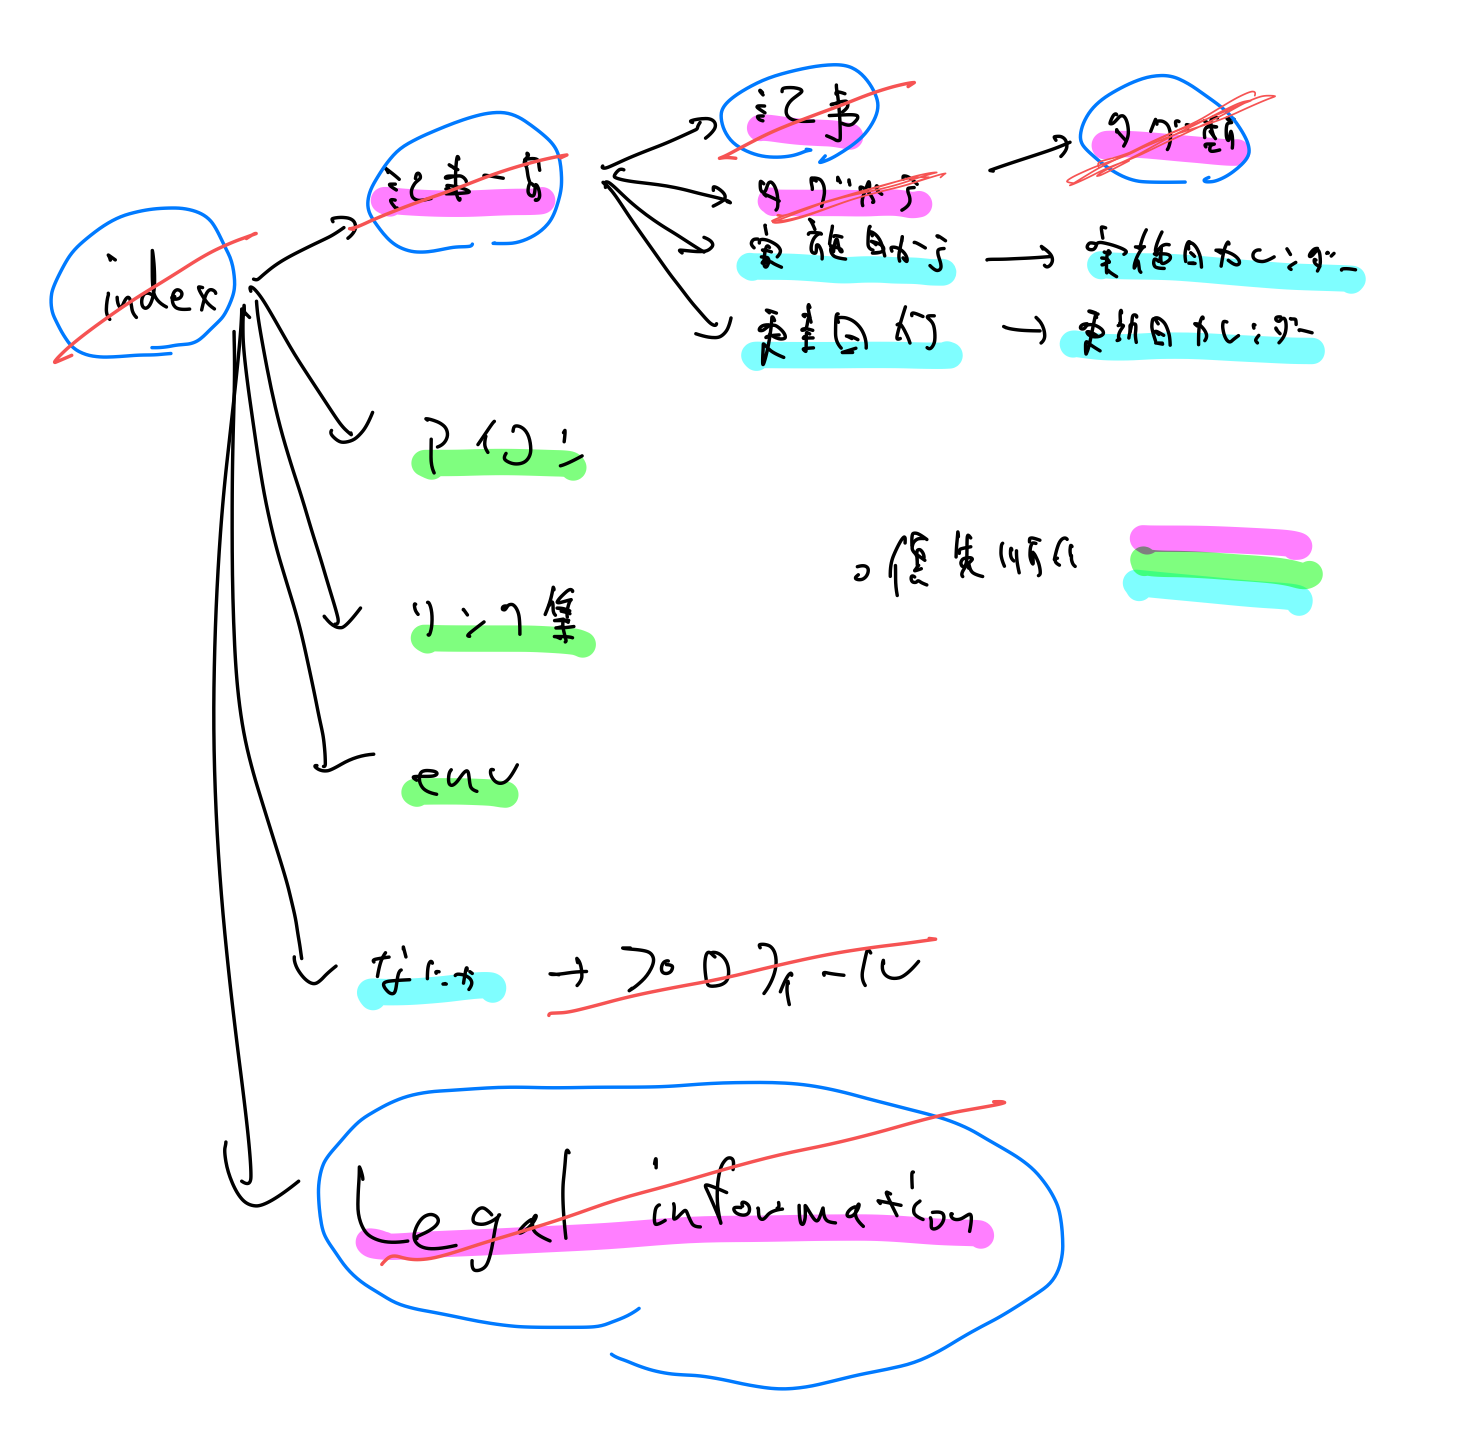 index
記事一覧
記事
タグから
実施日から
更新日から
タグ
実施日カレンダー
更新日カレンダー
アイコン
リンク集
env
優先順位
なにか
プロフィール
Legal information